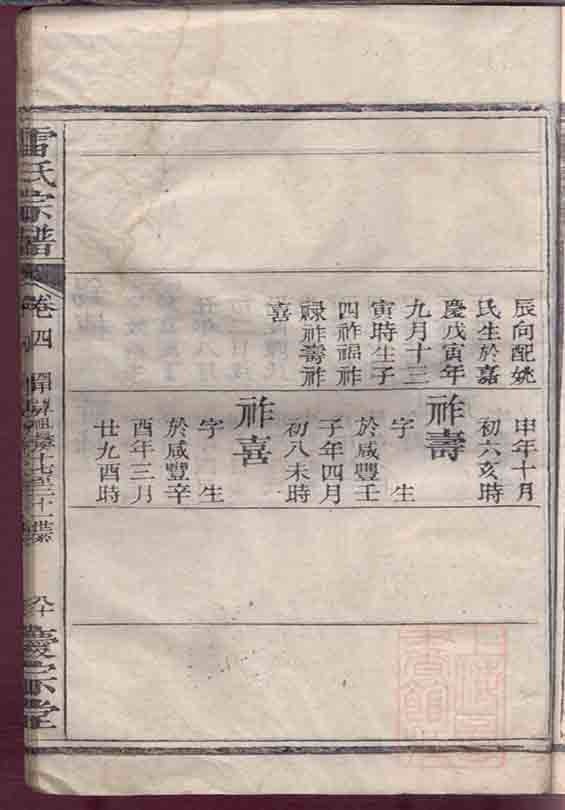 辰向配姚
氏生於嘉
慶戊寅年
九月十三
寅時生子
四祚福祚
祿祚壽祚
喜
申年十月
初六亥時
祚壽
字 生
於咸豐壬
子年四月
初八未時
祚喜
字 生
於咸豐辛
酉年三月
廿九酉時
雷氏宗譜
卷四
八十
慶宗堂